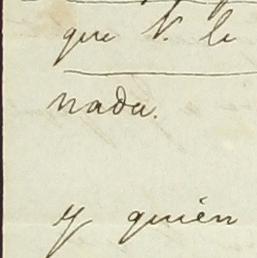 que V. le
nada.
y quién